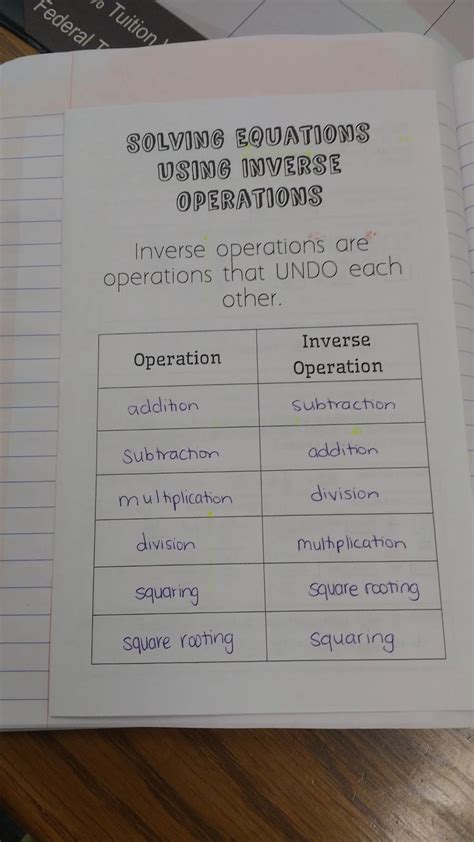 % Tuition
Federal T
SOLVING EQUATIONS
USING INVERSE
OPERATIONS
Inverse operations are
operations that UNDO each
other.
Operation
Inverse
Operation
addition subtraction
subtraction addition
multiplication division
division multiplication
squaring square rooting
square rooting squaring